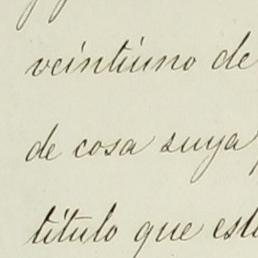 veintiuno de
de cosa suya
título que est